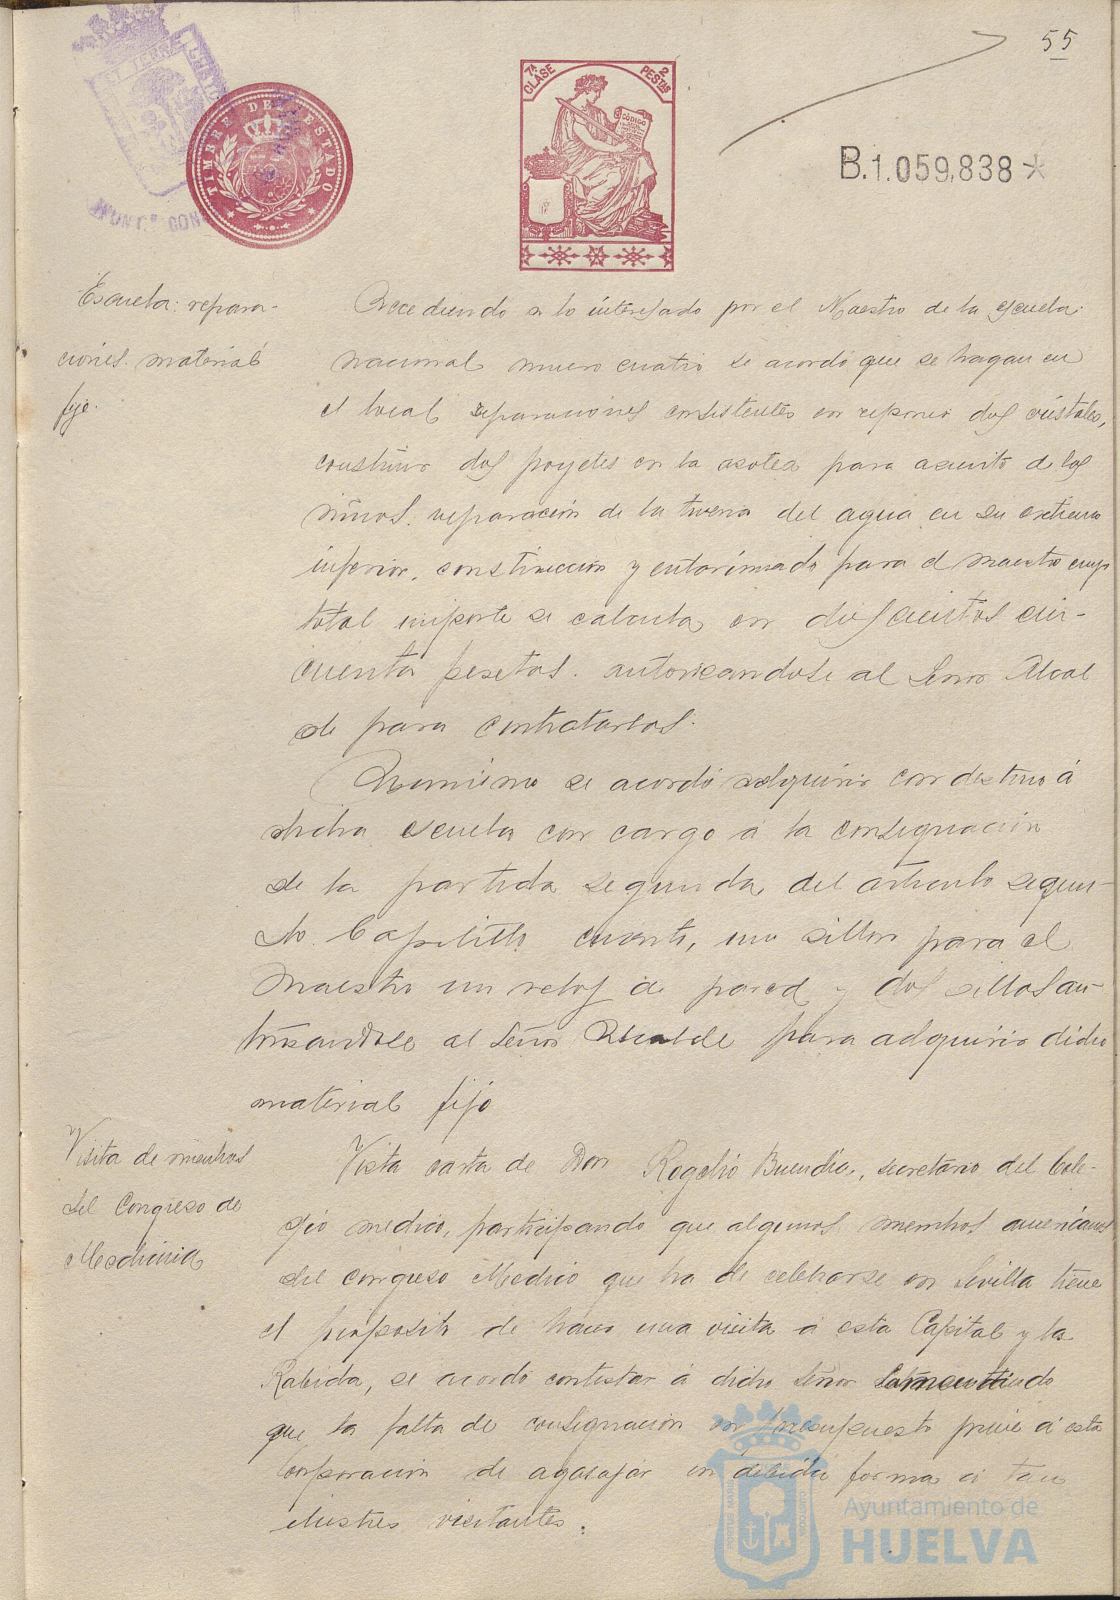 55
TIMBRE DEL ESTADO
7ª CLASE 2 PESTAS
CODIGO
B.1.059.838
Escuela: repara-
ciones. material
fijo.
Accediendo a lo interesado por el Maestro de la escuela
nacional número cuatro se acordó que se hagan en
el local reparaciones consistentes en reponer dos cristales,
construir dos poyetes en la azotea para asiento de los
niños. reparación de la tuberia del agua en su extremo
inferior, construcción y entarimado para el maestro cuyo
total importe se calcula en doscientos cin-
cuenta pesetas. autorizandose al Señor Alcal
de para contratarlos.
Asimismo se acordó adquirir con destino á
dicha escuela con cargo á la consignación
de la partida segunda, del articulo segun-
do. Capitulo cuarto, un sillon para el
Maestro un reloj de pared y dos sillas au-
torizandole al Señor Alcalde para adquirir dicho
material fijo
Visita de miembros
del Congreso de
Medicina
Vista carta de Don Rogelio Buendia, secretario del Cole-
gio medico, participando que algunos miembros americanos
del congreso Medico que ha de celebrarse en Sevilla tiene
el proposito de hacer una visita á esta Capital y la
Rabida, se acordó contestar á dicho Señor lamentando
que la falta de consignación en presupuesto prive á esta
Corporación de agasajar en debida forma á tan
ilustres visitantes.
Ayuntamiento de
HUELVA